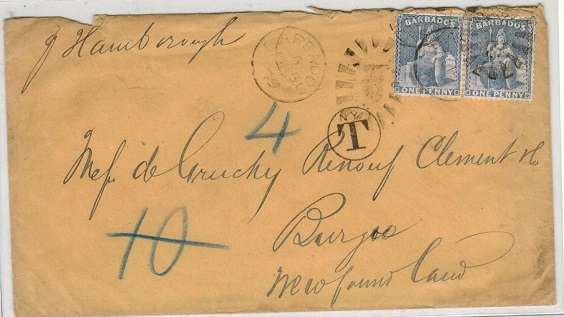 p Hamborough
BARBADOS
ONE PENNY
BARBADOS
ONE PENNY
BARBADOS
T
4
Mess. de Gruchy Renouf Clement & Co
10
Burgeo
Newfoundland